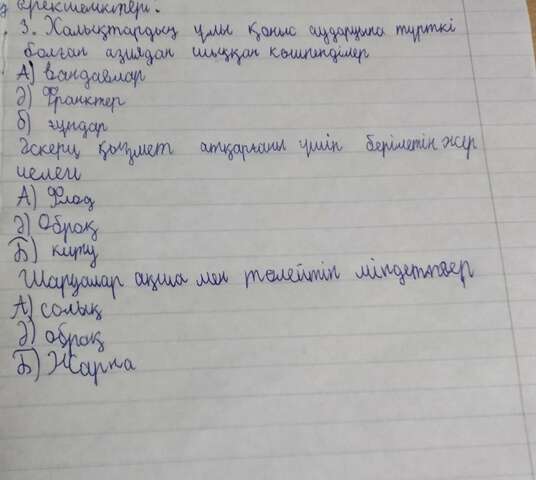 ерекшеліктері.
3. Халықтардың ұлы қоныс аударуына түрткі
болған азиядан шыққан көшпенділер
А) Вандалдар
Ә) Франктер
б) ғұндар
Әскери қызмет атқарғаны үшін берілетін жер
иелегі
А) Феод
Ә) Оброк
Б) киту
Шаруалар ақша мен төлейтін міндеттер
А) салық
Ә) оброк
Б) Жарна